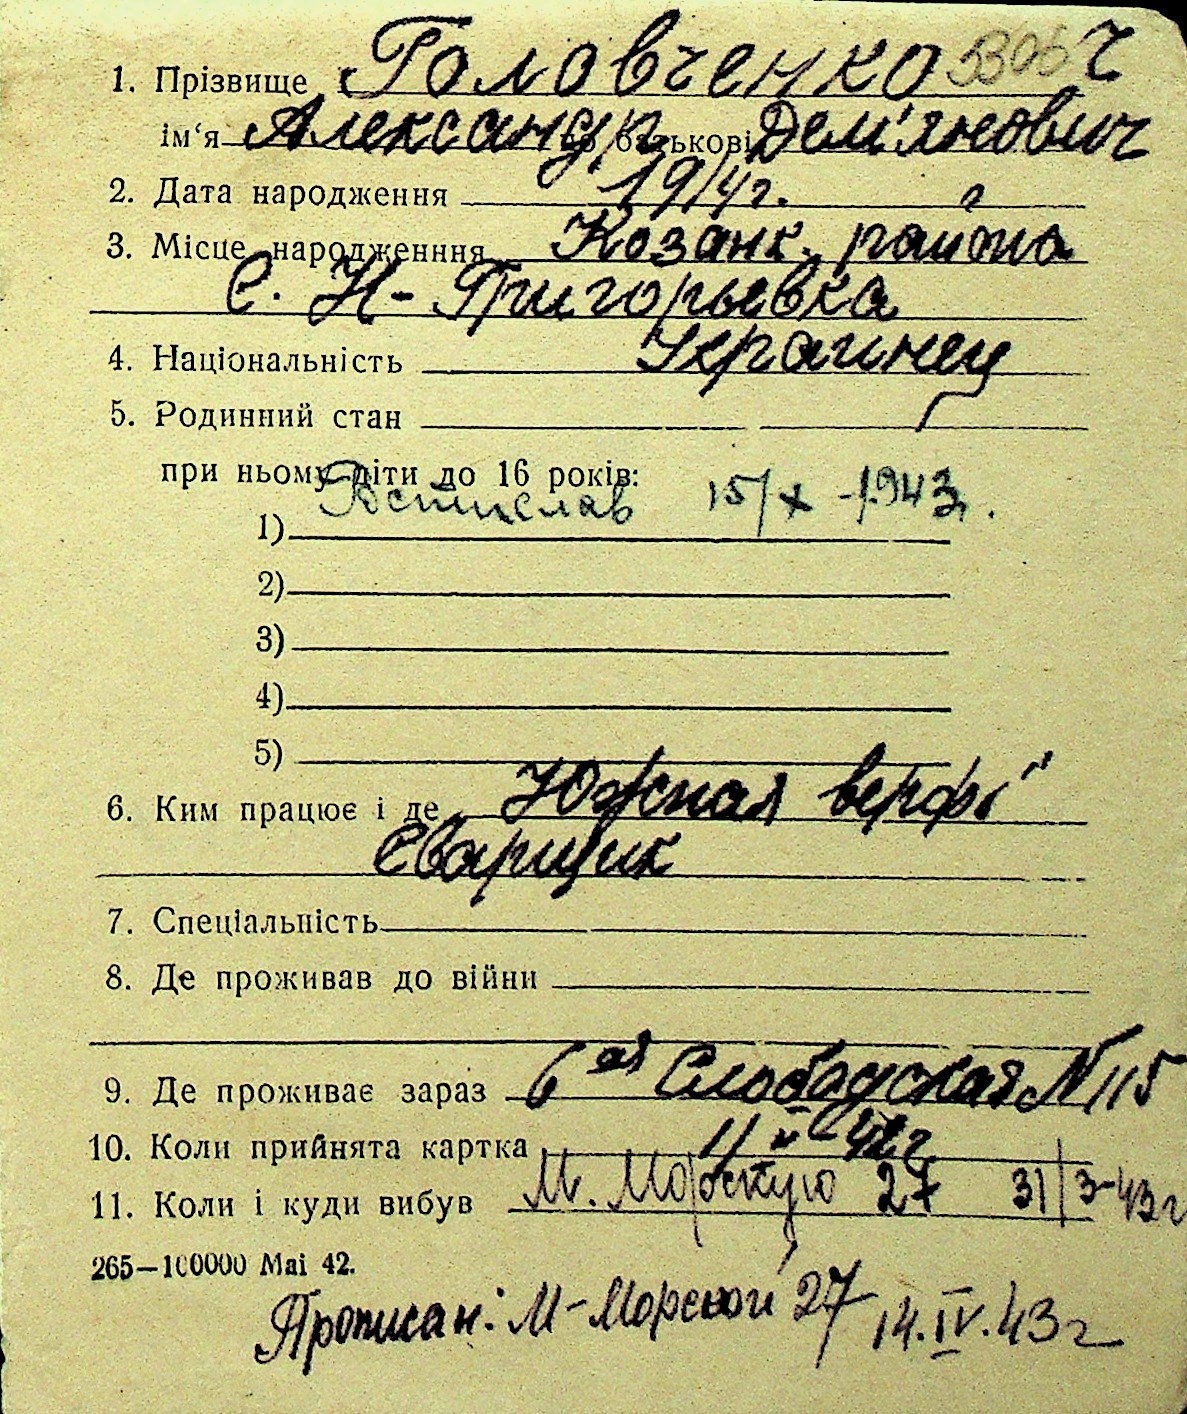 1. Прізвище Головченко 3306 Ч
ім'я Александр по батькові Дем'янович
2. Дата народження 1914г.
3. Місце народженння Козанк. района
с. Н-Григорьевка
4. Національність Украинец
5. Родинний стан
при ньому діти до 16 років:
1) Ростислав 15/X-1943г.
2)
3)
4)
5)
6. Ким працює і де „Южная верфь"
Сварщик
7. Спеціальність
8. Де проживав до війни
9. Де проживає зараз 6ая Слободская N 115
10. Коли прийнята картка 42г
11. Коли і куди вибув М. Морскую 27 31/3-43г
265—100000 Mai 42.
Прописан: М-Морской 27 14.IV.43г